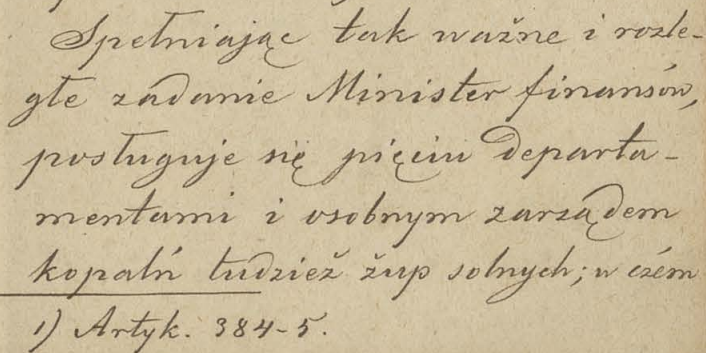 Spełniając tak ważne i rozle-
głe zadanie Minister finansów,
posługuje się pięciu departa-
mentami i osobnym zarządem
kopalń tudzież żup solnych; w czém
1) Artyk. 384-5.